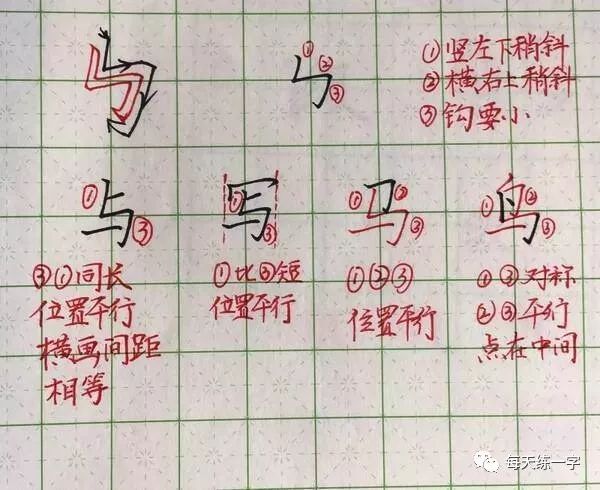 ① ② ③
①竖左下稍斜
②横右上稍斜
③钩要小
①与③
①写③
①马②③
①鸟②③
③①同长
位置平行
横画间距
相等
①比③短
位置平行
①②③
位置平行
①③对称
②③平行
点在中间
每天练一字